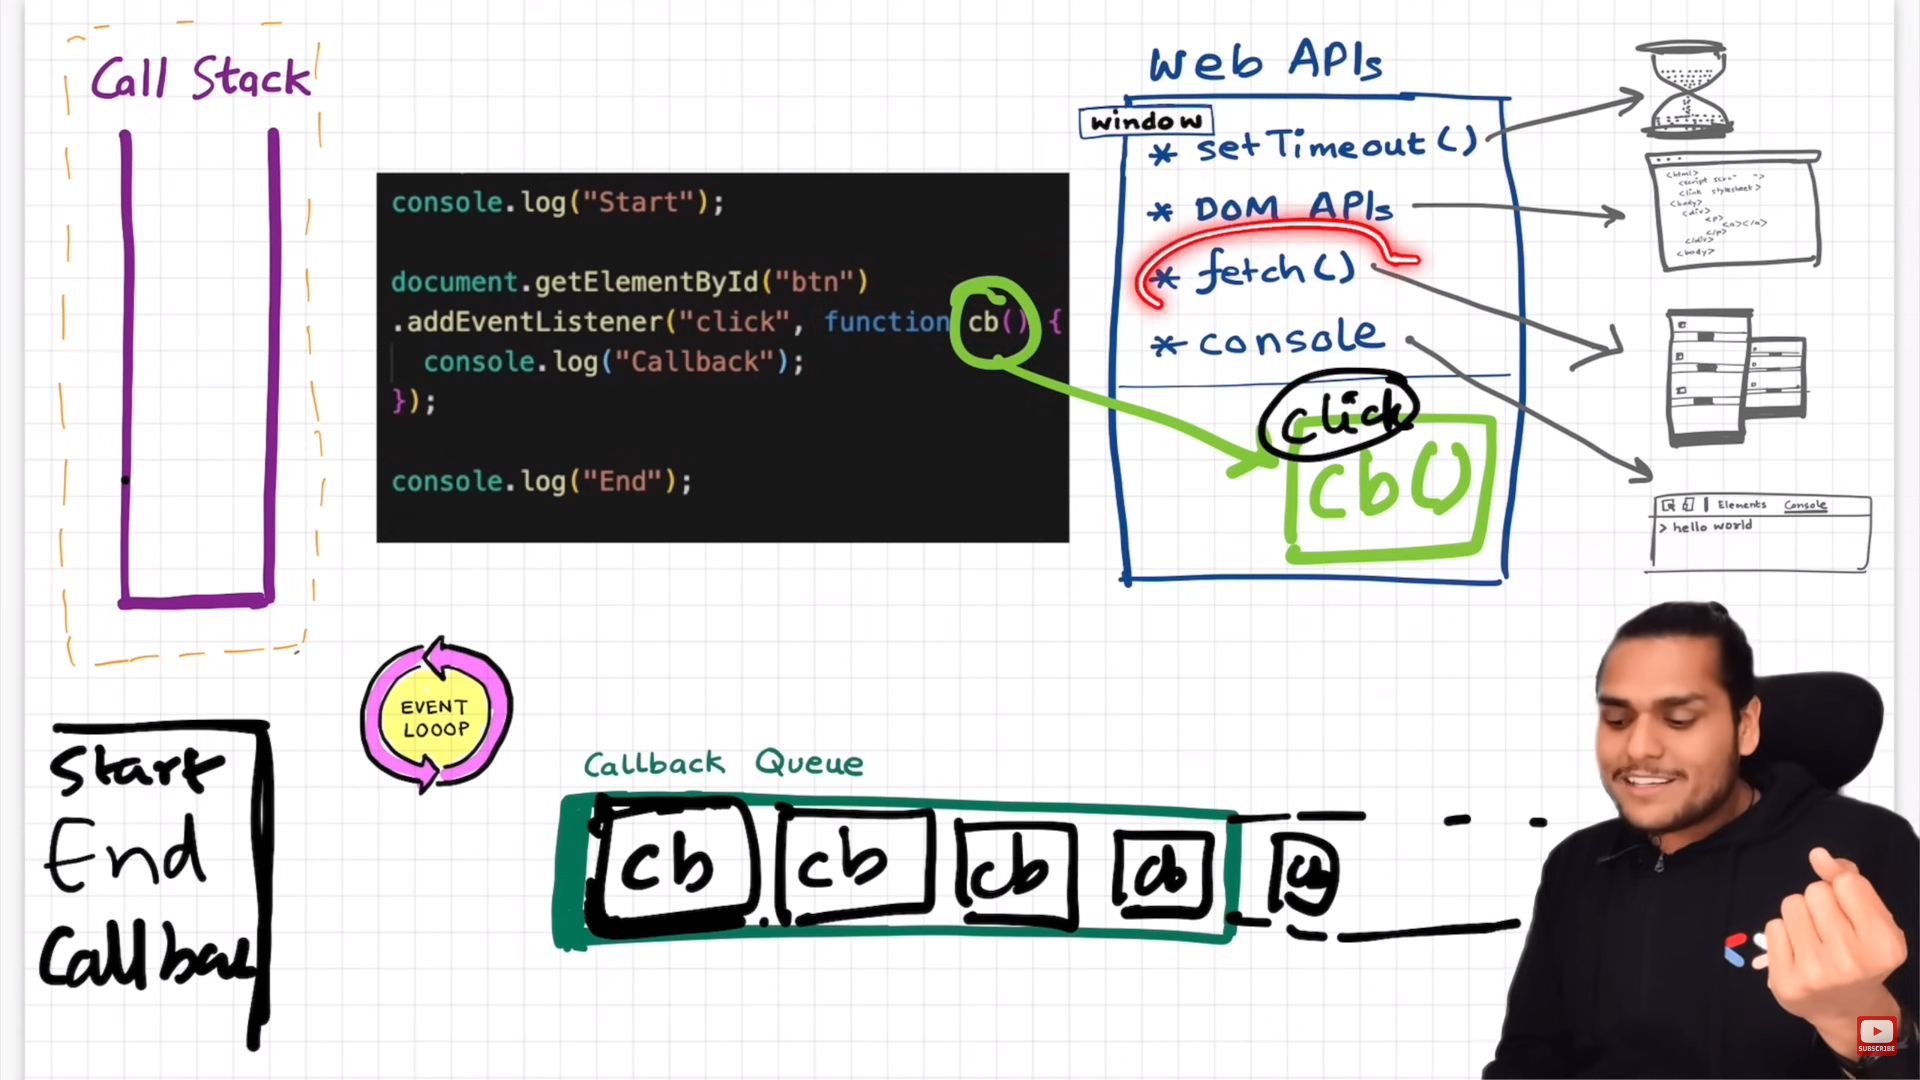 Call Stack
console.log("Start");
document.getElementById("btn")
.addEventListener("click", function cb() {
console.log("Callback");
});
console.log("End");
Web APIs
window
* setTimeout()
* DOM APIs
* fetch()
* console
click
cb()
<html>
<body>
<div>
<p>
<a></a>
</p>
</div>
<body>
Elements Console
> hello world
EVENT
LOOOP
Start
End
Callbac
Callback Queue
cb cb cb cb cb
SUBSCRIBE